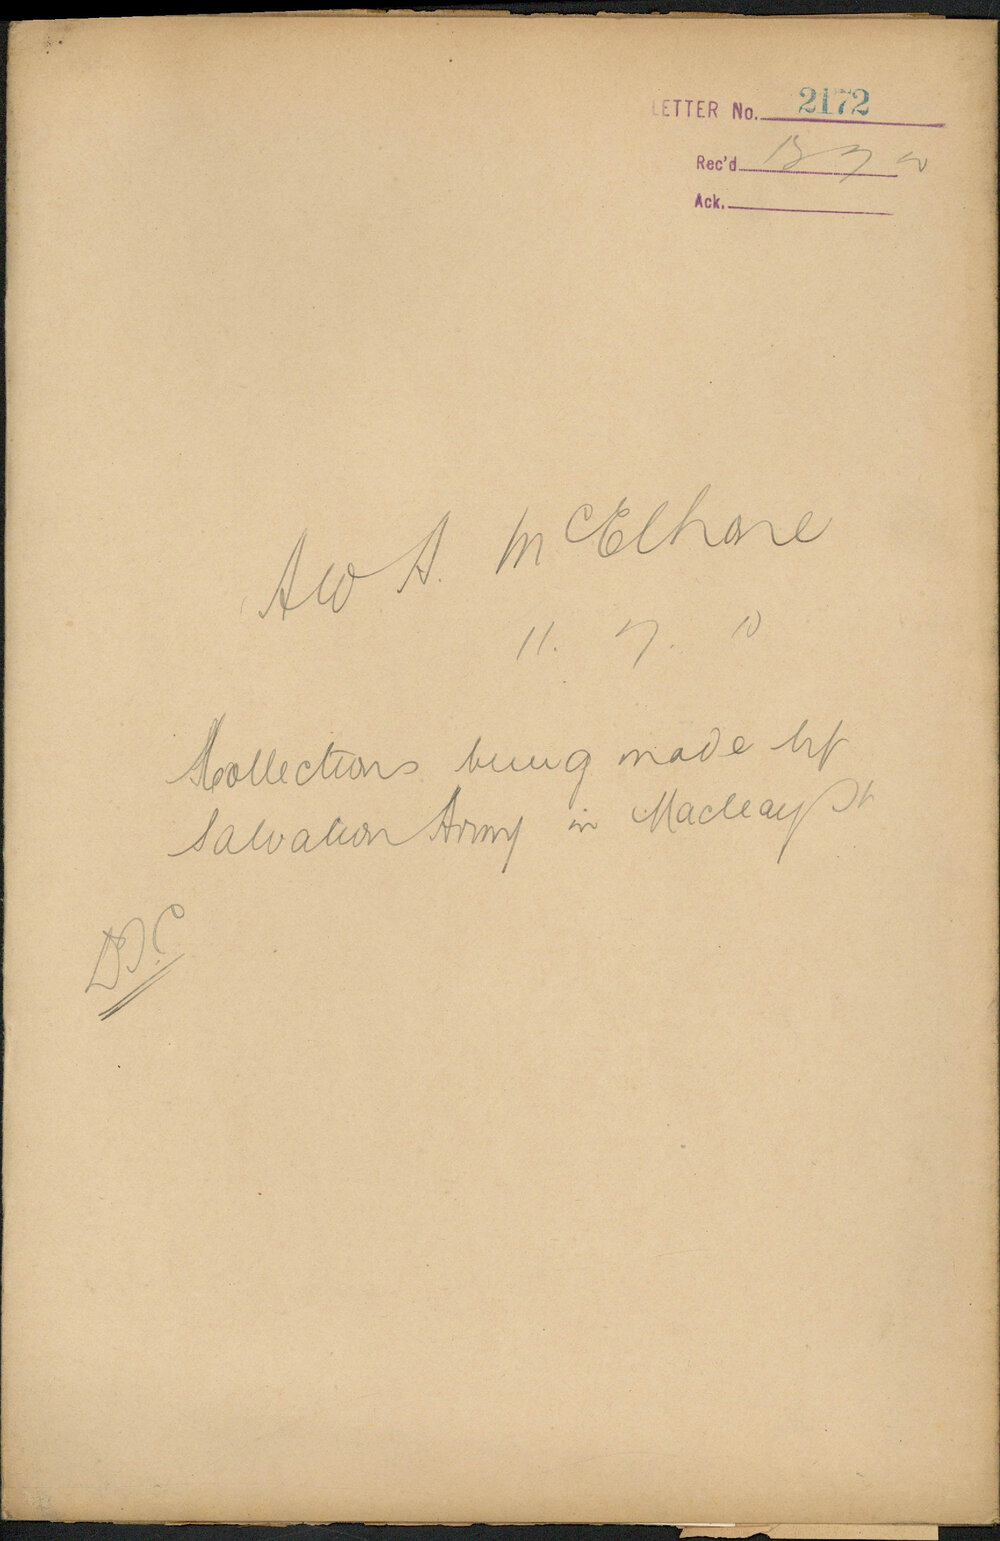 LETTER No. 2172
Rec'd 13 7
Ack.
A. McElhone
11. 7. 10
Collections being made by
Salvation Army in Macleay St
D.C